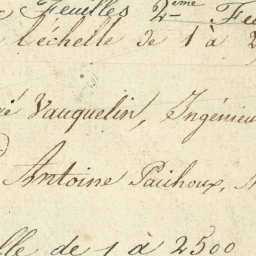 Feuilles 2ème Fe
l'échelle de 1 à 2
Vauquelin, Ingénieu
Antoine Pailhoux,
lle de 1 à 2500